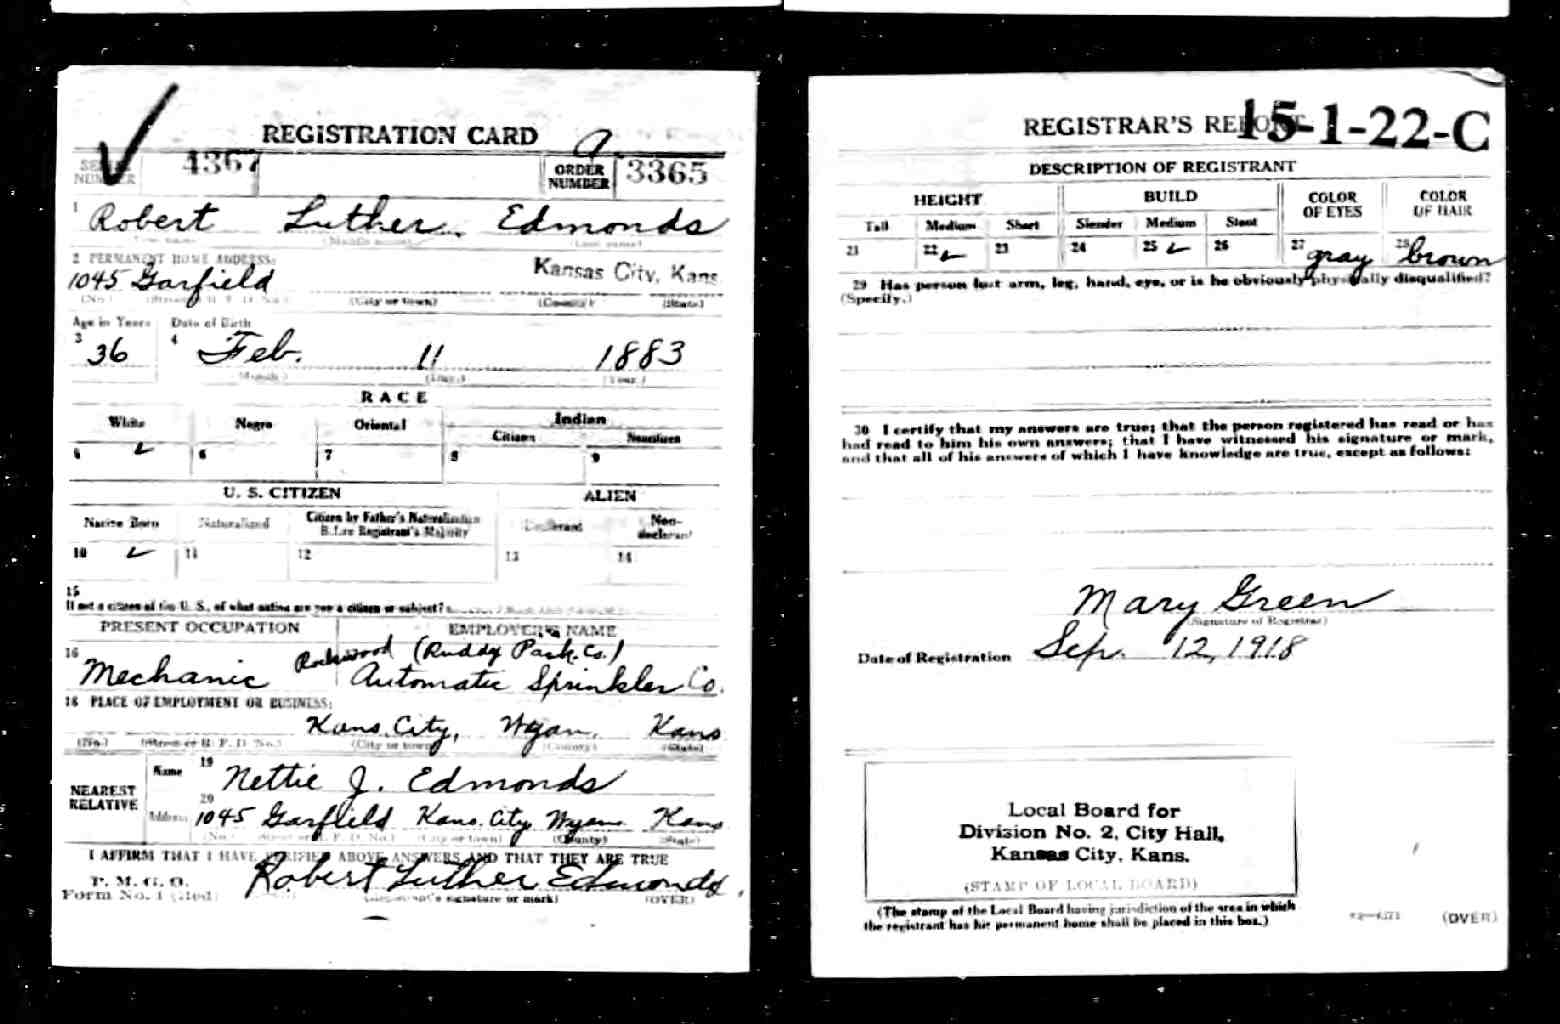 REGISTRATION CARD
SERIAL NUMBER 4367 ORDER NUMBER 3365
1 Robert Luther Edmonds
(First name) (Middle name) (Last name)
2 PERMANENT HOME ADDRESS:
1045 Garfield Kansas City, Kans.
(No.) (Street or R. F. D. No.) (City or town) (County) (State)
Age in Years Date of Birth
3 36 4 Feb. 11 1883
(Month.) (Day.) (Year.)
RACE
White Negro Oriental Indian
Citizen Noncitizen
5 6 7 8 9
U. S. CITIZEN ALIEN
Native Born Naturalized Citizen by Father's Naturalization Before Registrant's Majority Declarant Non-declarant
10 11 12 13 14
15
If not a citizen of the U. S., of what nation are you a citizen or subject?
PRESENT OCCUPATION EMPLOYER'S NAME
16 Mechanic Rockwood (Ruddy Pack. Co.)
Automatic Sprinkler Co.
18 PLACE OF EMPLOYMENT OR BUSINESS:
Kans. City, Wyan. Kans
(No.) (Street or R. F. D. No.) (City or town) (County) (State)
NEAREST RELATIVE
Name 19 Nettie J. Edmonds
Address 20 1045 Garfield Kans. City Wyan. Kans
(No.) (Street or R. F. D. No.) (City or town) (County) (State)
I AFFIRM THAT I HAVE VERIFIED ABOVE ANSWERS AND THAT THEY ARE TRUE
P. M. G. O.
Form No. 1 (Red) Robert Luther Edmonds.
(Registrant's signature or mark) (OVER)
REGISTRAR'S REPORT 15-1-22-C
DESCRIPTION OF REGISTRANT
HEIGHT BUILD COLOR OF EYES COLOR OF HAIR
Tall Medium Short Slender Medium Stout
21 22 23 24 25 26 27 gray 28 brown
29 Has person lost arm, leg, hand, eye, or is he obviously physically disqualified?
(Specify.)
30 I certify that my answers are true; that the person registered has read or has
had read to him his own answers; that I have witnessed his signature or mark,
and that all of his answers of which I have knowledge are true, except as follows:
Mary Green
(Signature of Registrar)
Date of Registration Sep. 12, 1918
Local Board for
Division No. 2, City Hall,
Kansas City, Kans.
(STAMP OF LOCAL BOARD)
(The stamp of the Local Board having jurisdiction of the area in which
the registrant has his permanent home shall be placed in this box.)
(OVER)